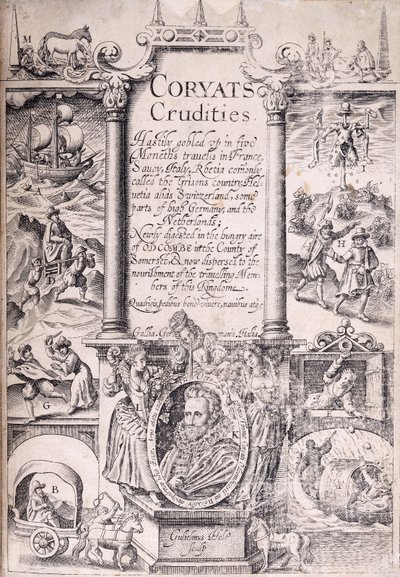 M
CORYATS
Crudities
Hastily gobled up in five
Moneths travells in France,
Savoy, Italy, Rhetia comonly
called the Grisons country, Hel-
vetia aliàs Switzerland, some
parts of high Germany, and the
Netherlands;
Newly digested in the hungry aire
of ODCOMBE in the County of
Somerset, & now dispersed to the
nourishment of the travelling Mem-
bers of this Kingdome.
Quadrigis, pedibus bene vivere, navibus atq;
Gallia Italia
H
G
B
K
Gulielmus Hole
sculp